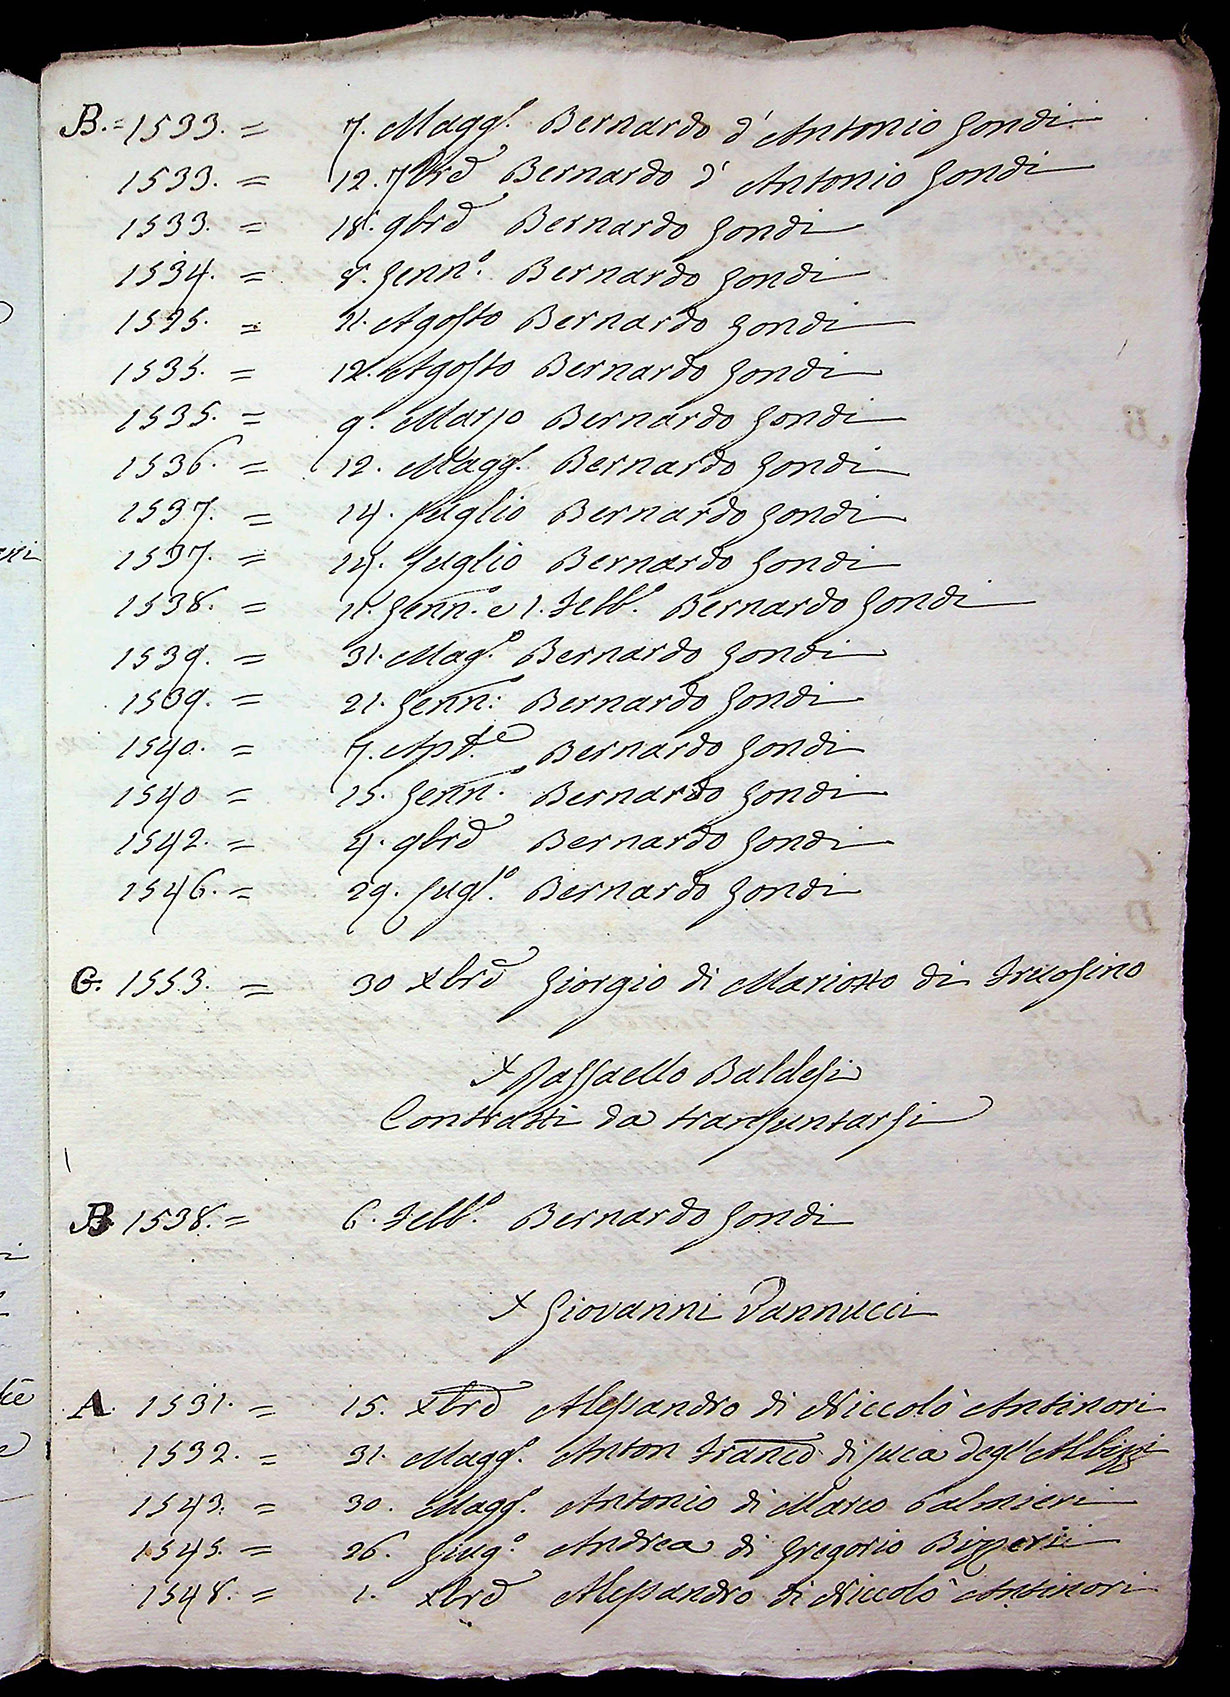 B. = 1533. = 7. Magg.º Bernardo d' Antonio Gondi
1533. = 12. 7bre Bernardo d' Antonio Gondi
1533. = 18. 9bre Bernardo Gondi
1534. = 8. Genn.º Bernardo Gondi
1535. = 21. Agosto Bernardo Gondi
1535. = 12. Agosto Bernardo Gondi
1535. = 9. Marzo Bernardo Gondi
1536. = 12. Magg.º Bernardo Gondi
1537. = 14. Luglio Bernardo Gondi
1537. = 14. Luglio Bernardo Gondi
1538. = Genn.º e 1. Febb.º Bernardo Gondi
1539. = 31. Mag.º Bernardo Gondi
1539. = 21. Genn: Bernardo Gondi
1540. = 7. Bernardo Gondi
1540 = 15. Genn.º Bernardo Gondi
1542. = 4. 9bre Bernardo Gondi
1546. = 29. Lugl.º Bernardo Gondi
G. 1553. = 30 Xbre Giorgio di Mariotto di
+ Raffaello Baldesi
Contratti da transuntarsi
B 1538. = 6. Febb.º Bernardo Gondi
+ Giovanni Vannucci
A. 1531. = 15. Xbre Alessandro di Niccolò Antinori
1532. = 31. Magg.º Anton Franco di Luca degl'Albizzi
1543. = 30. Magg.º Antonio di Marco Palmieri
1545. = 26. Giug.º Andrea di Gregorio Bizzerii
1548. = 1. Xbre Alessandro di Niccolò Antinori